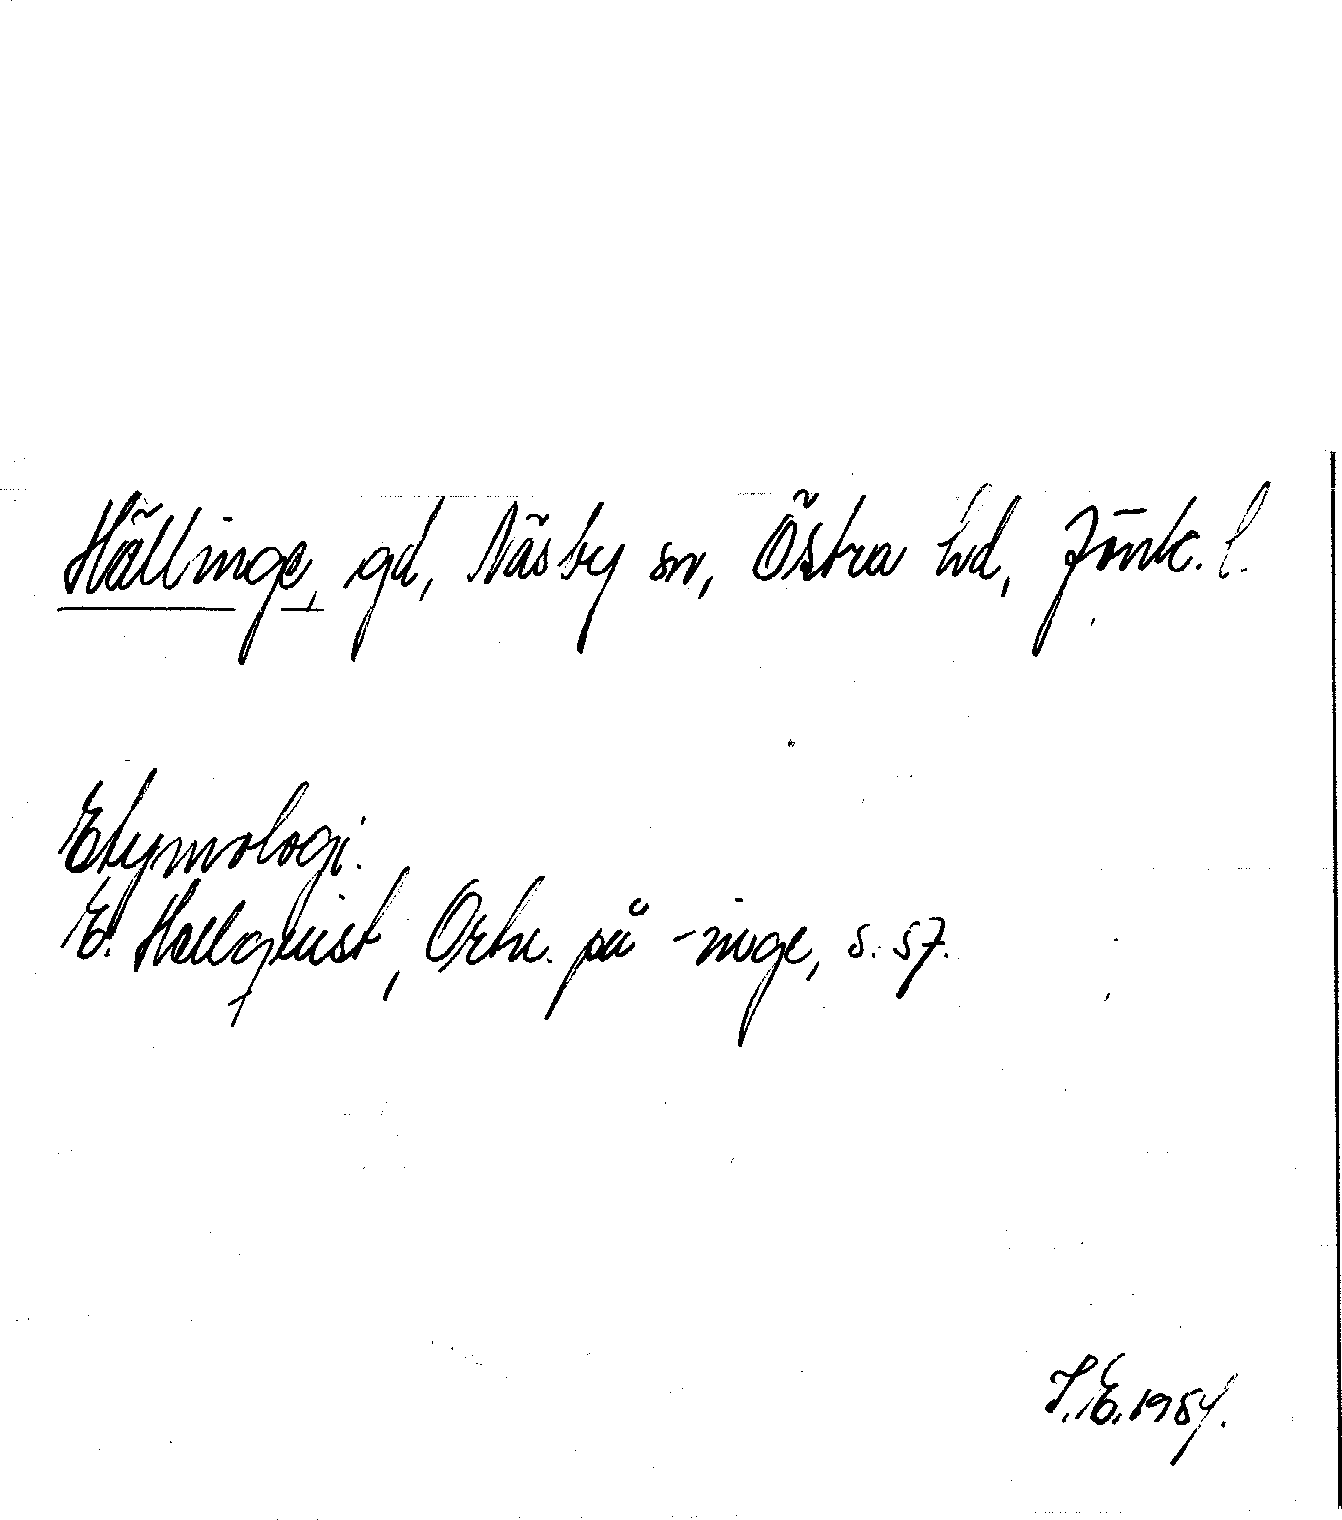 Hällinge, gd, Näsby sn, Östra hd, Jönk. l.
Etymologi.
E. Hellquist, Ortn. på -inge, s. 57.